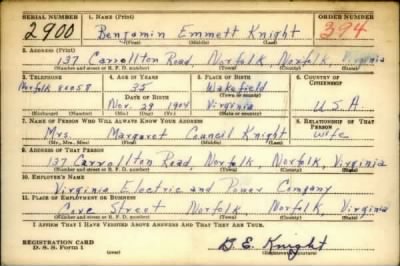 SERIAL NUMBER 1. NAME (Print) ORDER NUMBER
2900 Benjamin Emmett Knight 394
(First) (Middle) (Last)
2. ADDRESS (Print)
137 Carrollton Road, Norfolk, Norfolk, Virginia
(Number and street or R. F. D. number) (Town) (County) (State)
3. TELEPHONE 4. AGE IN YEARS 5. PLACE OF BIRTH 6. COUNTRY OF CITIZENSHIP
35 Wakefield
Norfolk 80058 DATE OF BIRTH (Town or county)
Nov. 29 1904 Virginia U.S.A
(Exchange) (Number) (Mo.) (Day) (Yr.) (State or country)
7. NAME OF PERSON WHO WILL ALWAYS KNOW YOUR ADDRESS 8. RELATIONSHIP OF THAT PERSON
Mrs. Margaret Council Knight wife
(Mr., Mrs., Miss) (First) (Middle) (Last)
9. ADDRESS OF THAT PERSON
137 Carrollton Road, Norfolk, Norfolk, Virginia
(Number and street or R. F. D. number) (Town) (County) (State)
10. EMPLOYER'S NAME
Virginia Electric and Power Company
11. PLACE OF EMPLOYMENT OR BUSINESS
Street Norfolk Norfolk, Virginia
(Number and street or R. F. D. number) (Town) (County) (State)
I AFFIRM THAT I HAVE VERIFIED ABOVE ANSWERS AND THAT THEY ARE TRUE.
REGISTRATION CARD B. E. Knight
D. S. S. Form 1 (Registrant's signature)